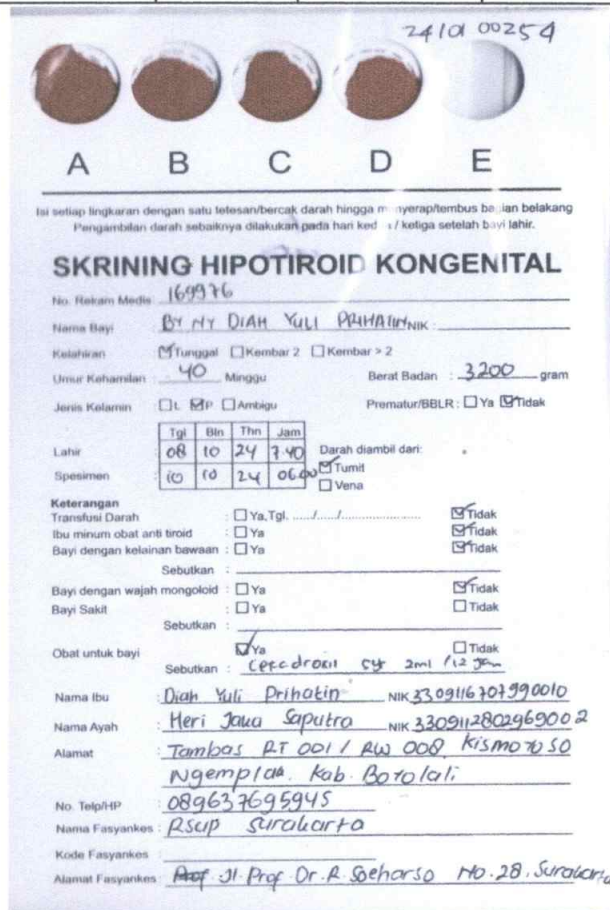 24101 00254
A B C D E
Isi setiap lingkaran dengan satu tetesan/bercak darah hingga menyerap/tembus bagian belakang
Pengambilan darah sebaiknya dilakukan pada hari kedua / ketiga setelah bayi lahir.
SKRINING HIPOTIROID KONGENITAL
No. Rekam Medis 169976
Nama Bayi BY NY DIAH YULI PRIHATIN NIK :
Kelahiran ☑Tunggal ☐Kembar 2 ☐Kembar > 2
Umur Kehamilan : 40 Minggu Berat Badan : 3200 gram
Jenis Kelamin : ☐L ☑P ☐Ambigu Prematur/BBLR : ☐ Ya ☑Tidak
Tgl Bln Thn Jam
Lahir : 08 10 24 7.40 Darah diambil dari:
Spesimen : 10 10 24 06.00 ☑Tumit
☐Vena
Keterangan
Transfusi Darah : ☐ Ya, Tgl. ....../....../...................... ☑Tidak
Ibu minum obat anti tiroid : ☐ Ya ☑Tidak
Bayi dengan kelainan bawaan : ☐ Ya ☑Tidak
Sebutkan :
Bayi dengan wajah mongoloid : ☐ Ya ☑Tidak
Bayi Sakit : ☐ Ya ☐ Tidak
Sebutkan :
Obat untuk bayi ☑Ya ☐ Tidak
Sebutkan : Cefadroxil syr 2ml /12 jam
Nama Ibu : Diah Yuli Prihatin NIK 3309116707990010
Nama Ayah : Heri Jaka Saputro NIK 3309112802969002
Alamat : Tambas RT 001 / RW 008, Kismoroso
Ngemplak. Kab. Boyolali
No. Telp/HP : 089637695945
Nama Fasyankes : RSUP Surakarta
Kode Fasyankes :
Alamat Fasyankes : Jl. Prof. Dr. R. Soeharso No. 28, Surakarta